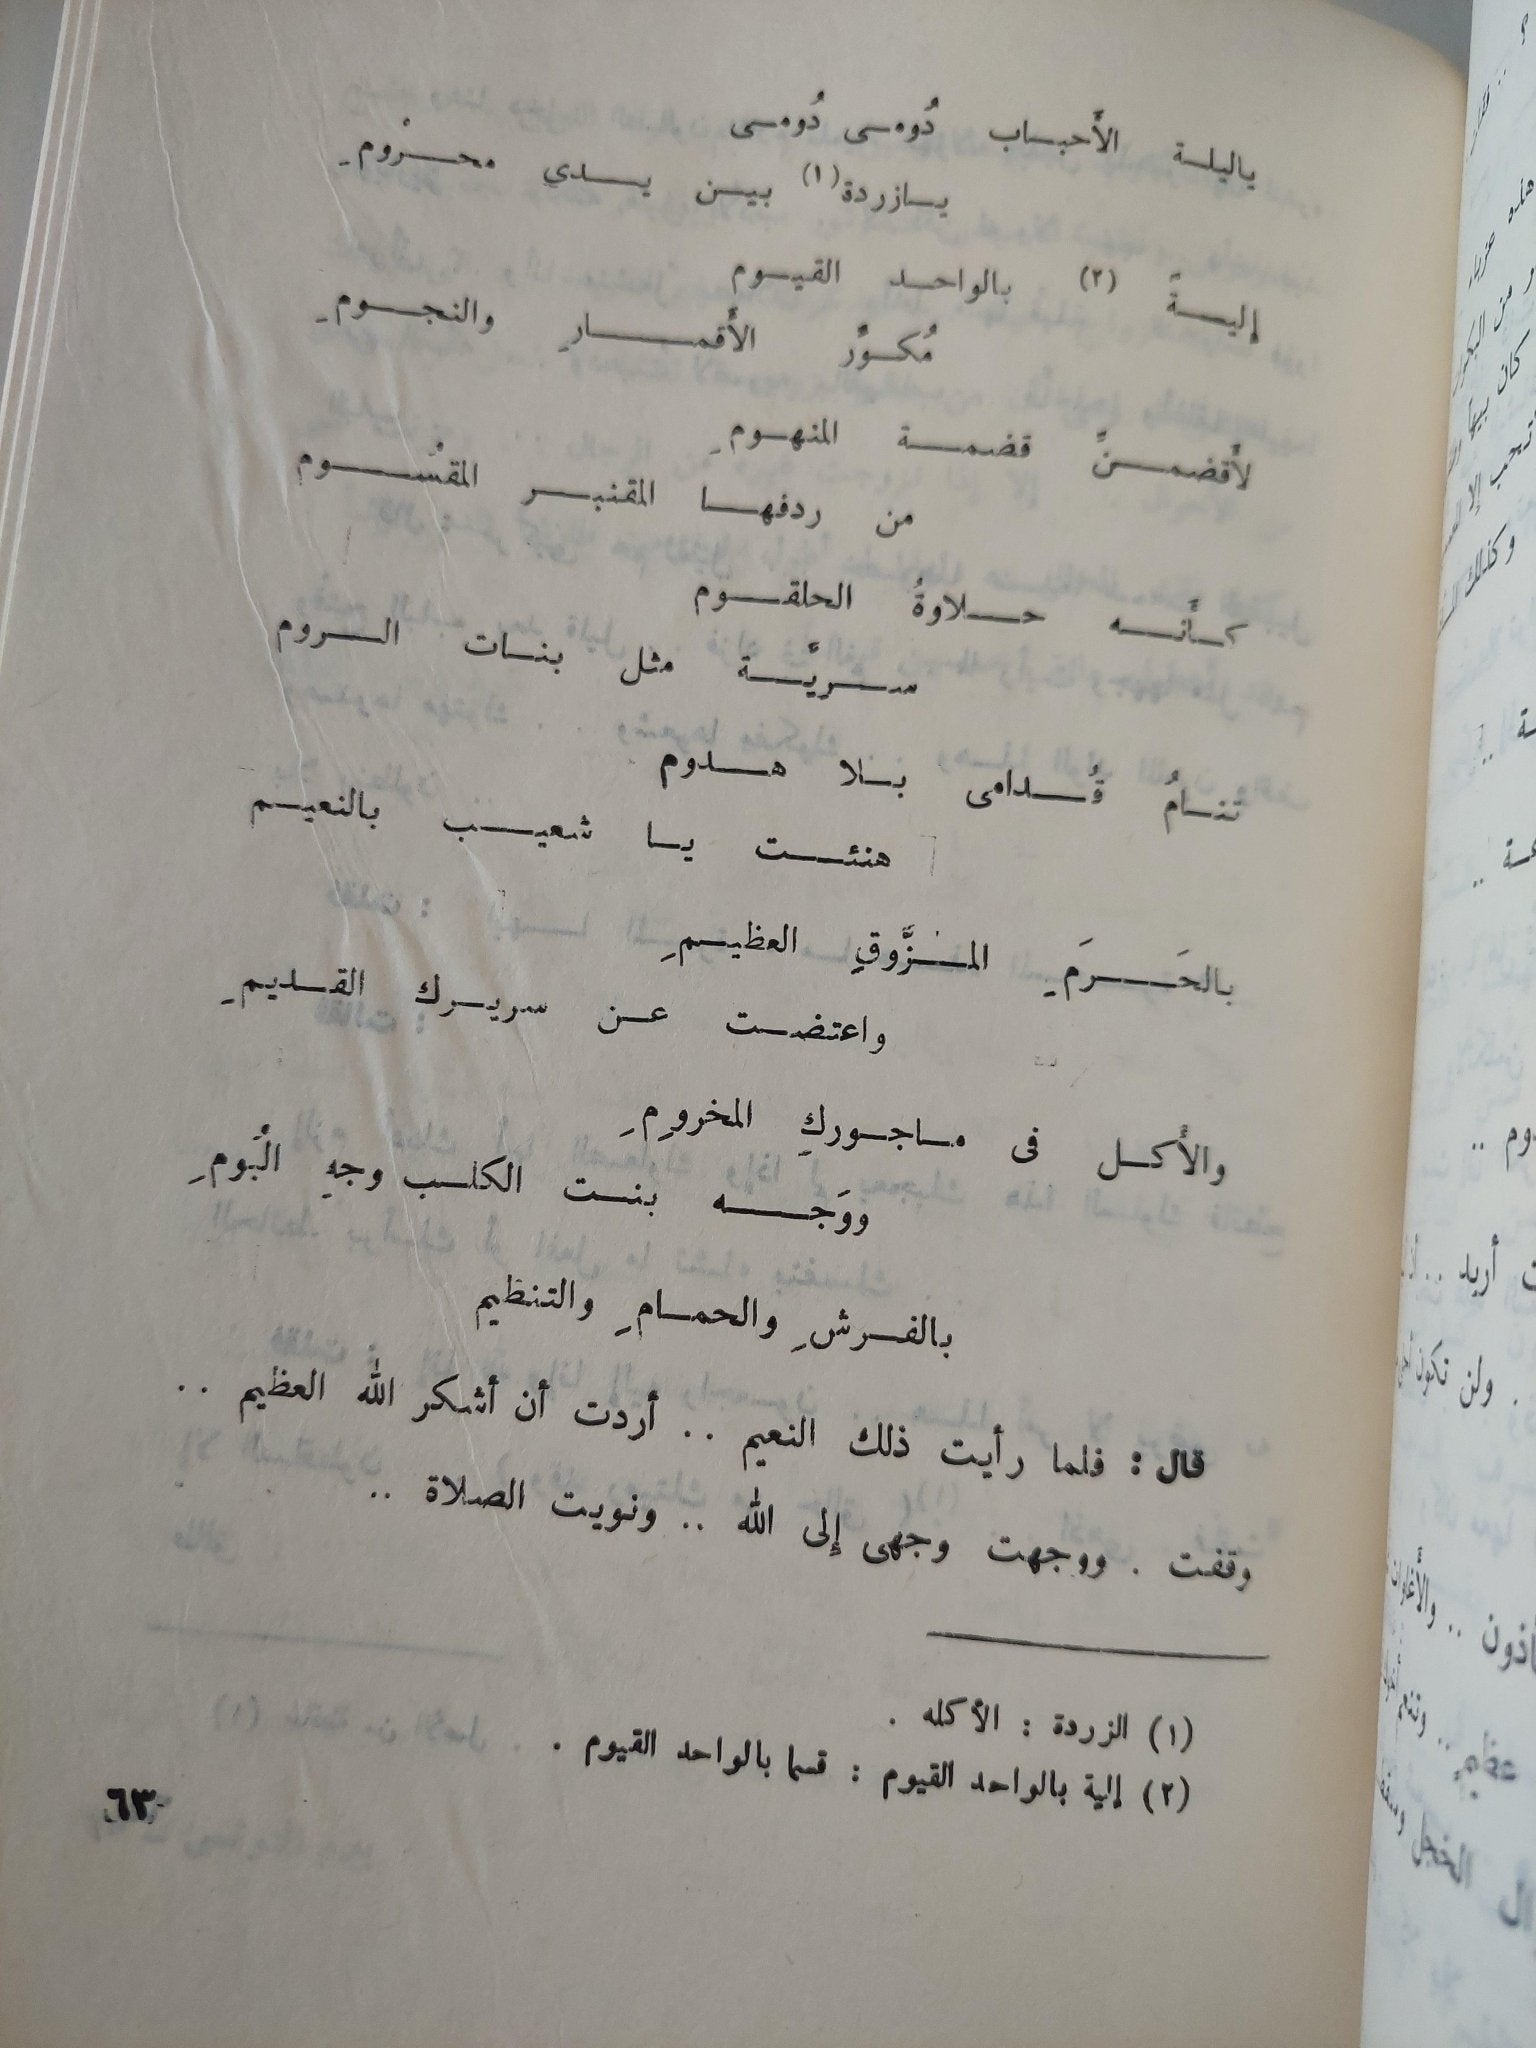 ياليلة الأحباب دُومى دُومى
يازردة(١) بين يدي محرْوم
إليةً (٢) بالواحد القيوم
مُكوِّر الأقمارِ والنجومِ
لأقضمنَّ قضمة المنهومِ
من ردفها المقنبر المقسْوم
كأنه حلاوةُ الحلقوم
سريَّة مثل بنات الروم
تنامُ قُدامى بلا هدوم
هنئت يا شعيب بالنعيم
بالحَرَمِ المزَّوقِ العظيمِ
واعتضت عن سريرك القديمِ
والأكل فى ماجوركِ المخرومِ
ووَجه بنت الكلب وجهِ الْبومِ
بالفرشِ والحمامِ والتنظيم
قال : فلما رأيت ذلك النعيم .. أردت أن أشكر الله العظيم ..
وقفت . ووجهت وجهى إلى الله .. ونويت الصلاة ..
(١) الزردة : الأكله .
(٢) إلية بالواحد القيوم : قسما بالواحد القيوم .
٦٣
أريد ..